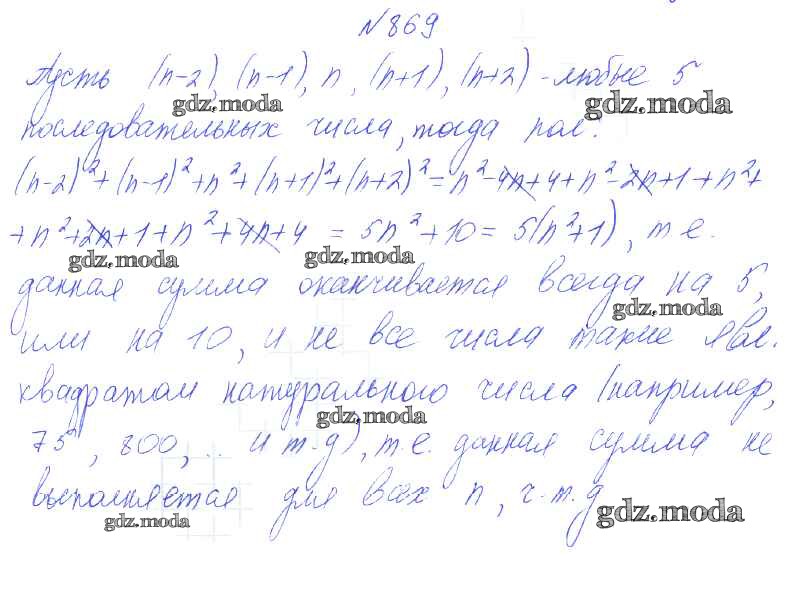 №869
Пусть (n-2), (n-1), n, (n+1), (n+2) - любые 5
gdz.moda gdz.moda
последовательных числа, тогда пол:
(n-2)²+(n-1)²+n²+(n+1)²+(n+2)²=n²-4n+4+n²-2n+1+n²+
+n²+2n+1+n²+4n+4 = 5n²+10= 5(n²+1), т.е.
gdz.moda gdz.moda
данная сумма оканчивается всегда на 5,
gdz.moda
или на 10, и не все числа такие явл.
квадратом натурального числа (например,
gdz.moda
75, 800, .. и т.д), т.е. данная сумма не
выполняется для всех n, ч.т.д
gdz.moda gdz.moda